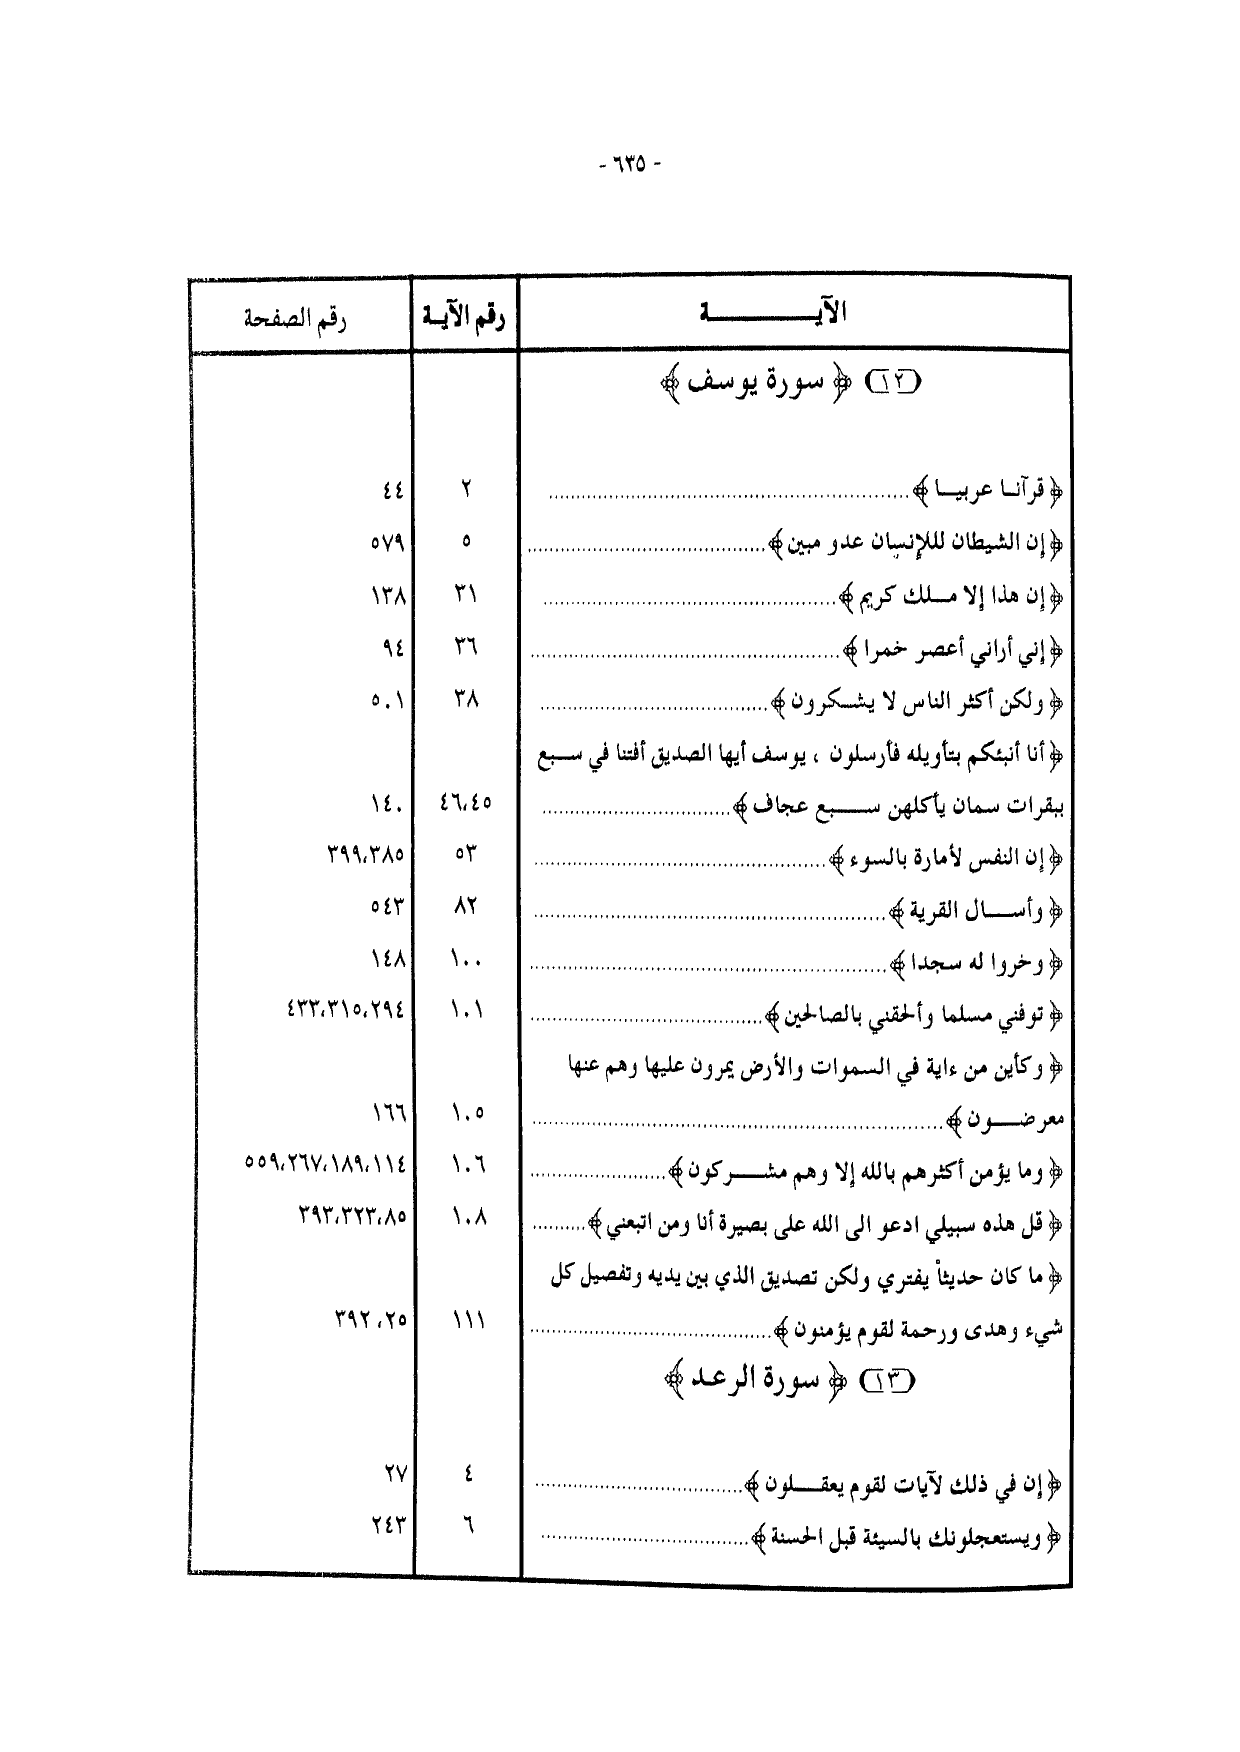 - ٦٣٥ -
الآيــــــة رقم الآيـة رقم الصفحة
(١٢) ﴿ سورة يوسف ﴾
﴿ قرآنـا عربيـا ﴾ ........ ٢ ٤٤
﴿ إن الشيطان لللإنسان عدو مبين ﴾ ........ ٥ ٥٧٩
﴿ إن هذا إلا مـلك كريم ﴾ ........ ٣١ ١٣٨
﴿ إني أراني أعصر خمرا ﴾ ........ ٣٦ ٩٤
﴿ ولكن أكثر الناس لا يشـكرون ﴾ ........ ٣٨ ٥٠١
﴿ أنا أنبئكم بتأويله فأرسلون ، يوسف أيها الصديق أفتنا في سـبع
ببقرات سمان يأكلهن سـبع عجاف ﴾ ........ ٤٦،٤٥ ١٤٠
﴿ إن النفس لأمارة بالسوء ﴾ ........ ٥٣ ٣٩٩،٣٨٥
﴿ وأسـال القرية ﴾ ........ ٨٢ ٥٤٣
﴿ وخروا له سجدا ﴾ ........ ١٠٠ ١٤٨
﴿ توفني مسلما وألحقني بالصالحين ﴾ ........ ١٠١ ٤٣٣،٣١٥،٢٩٤
﴿ وكأين من ءاية في السموات والأرض يمرون عليها وهم عنها
معرضـون ﴾ ........ ١٠٥ ١٦٦
﴿ وما يؤمن أكثرهم بالله إلا وهم مشـركون ﴾ ........ ١٠٦ ٥٥٩،٢٦٧،١٨٩،١١٤
﴿ قل هذه سبيلي ادعو الى الله على بصيرة أنا ومن اتبعني ﴾ ........ ١٠٨ ٣٩٣،٣٢٣،٨٥
﴿ ما كان حديثاً يفتري ولكن تصديق الذي بين يديه وتفصيل كل
شيء وهدى ورحمة لقوم يؤمنون ﴾ ........ ١١١ ٣٩٢،٢٥
(١٣) ﴿ سورة الرعد ﴾
﴿ إن في ذلك لآيات لقوم يعقـلون ﴾ ........ ٤ ٢٧
﴿ ويستعجلونك بالسيئة قبل الحسنة ﴾ ........ ٦ ٢٤٣